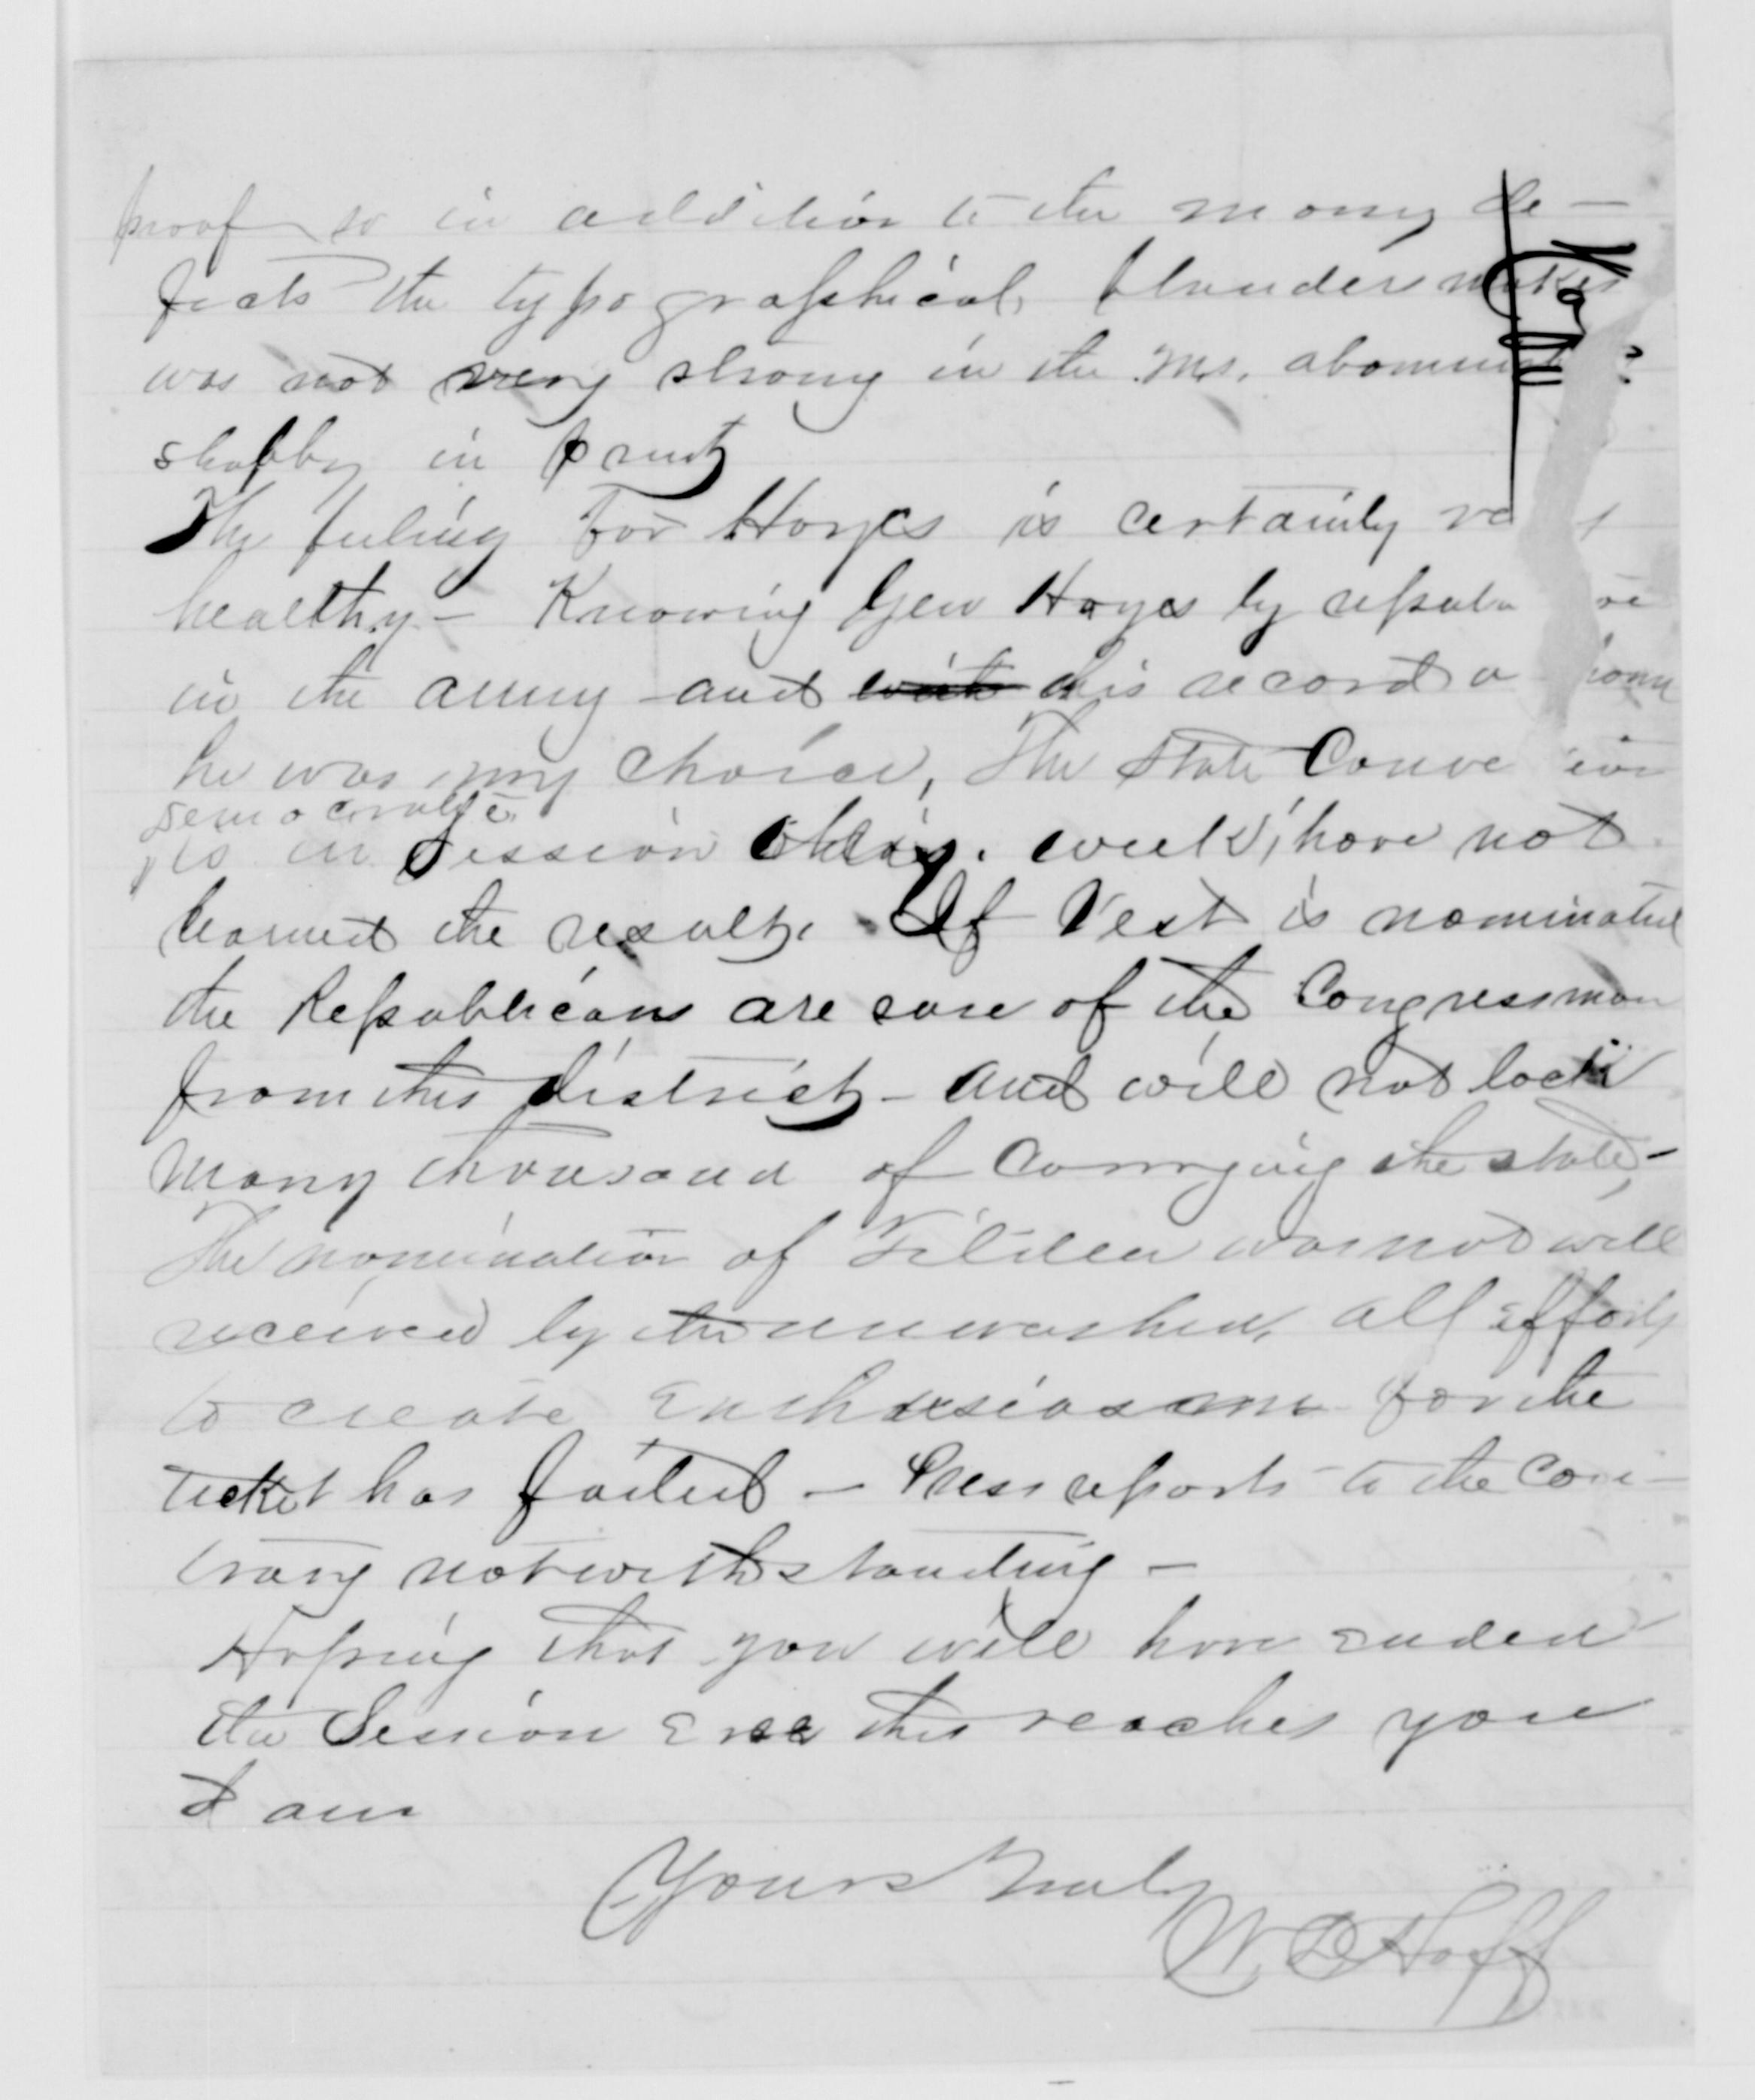 proof so in addition to the many de-
fects the typographical blunders makes
was not very strong in the Ms. abomin
shabby in print
The feeling for Hayes is certainly ve y
healthy - Knowing Gen Hayes by reputa on
in the army and with his record a home
he was my choice, The State Conve ion
democratic
is in session this week, have not
learned the result. If Vest is nominated
the Republicans are sure of the Congressman
from this district - and will not lack
many thousand of carrying the state -
The nomination of Tilden was not well
received by the unwashed, all efforts
to create enthusiasm for the
ticket has failed - Press reports to the con-
trary notwithstanding -
Hoping that you will have ended
the Session ere this reaches you
I am
Yours Truly
W. D. Hoff